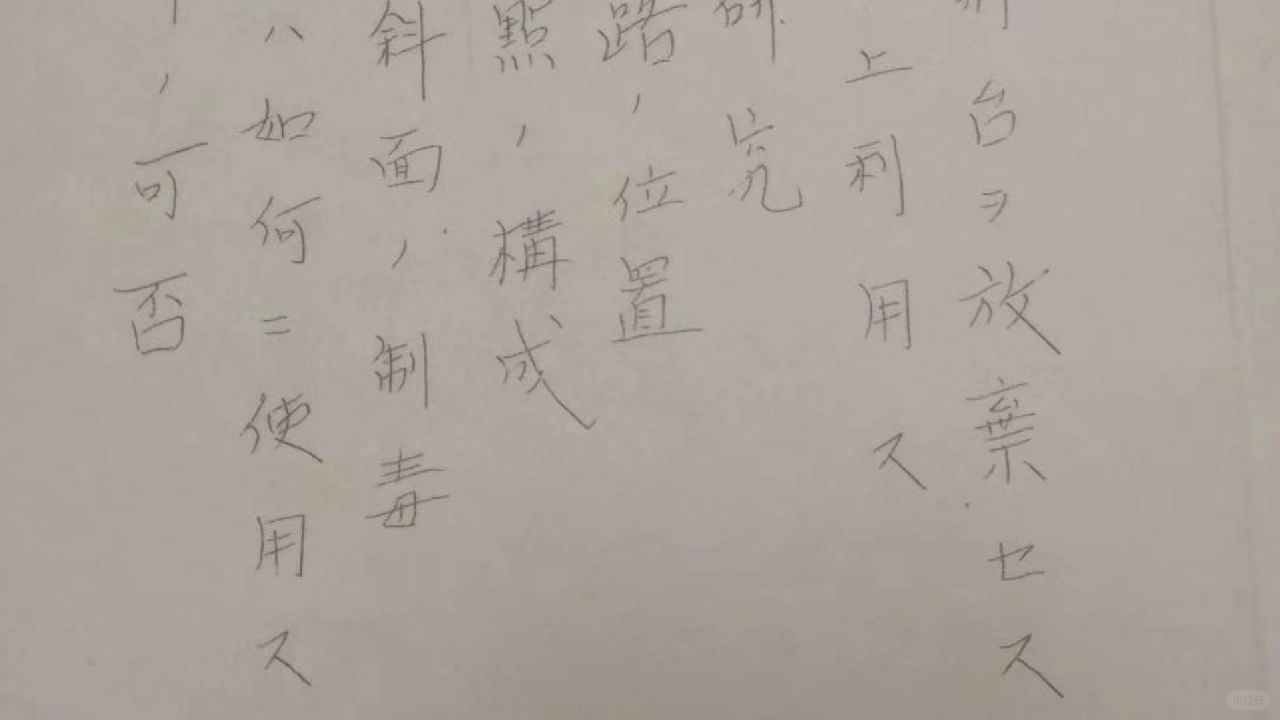 台ヲ放棄セス
上利用ス
研究
路ノ位置
點ノ構成
斜面ノ制毒
ハ如何ニ使用ス
ノ可否